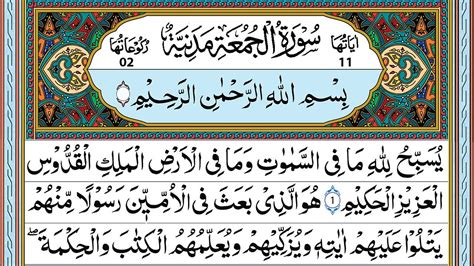 اٰيَاتُهَا 11 سُوْرَةُ الْجُمُعَةِ مَدَنِيَّةٌ رُكُوْعَاتُهَا 02
بِسْمِ اللّٰهِ الرَّحْمٰنِ الرَّحِيْمِ
يُسَبِّحُ لِلّٰهِ مَا فِى السَّمٰوٰتِ وَمَا فِى الْاَرْضِ الْمَلِكِ الْقُدُّوْسِ
الْعَزِيْزِ الْحَكِيْمِ ۝۱ هُوَ الَّذِىْ بَعَثَ فِى الْاُمِّيّٖنَ رَسُوْلًا مِّنْهُمْ
يَتْلُوْا عَلَيْهِمْ اٰيٰتِهٖ وَيُزَكِّيْهِمْ وَيُعَلِّمُهُمُ الْكِتٰبَ وَالْحِكْمَةَ